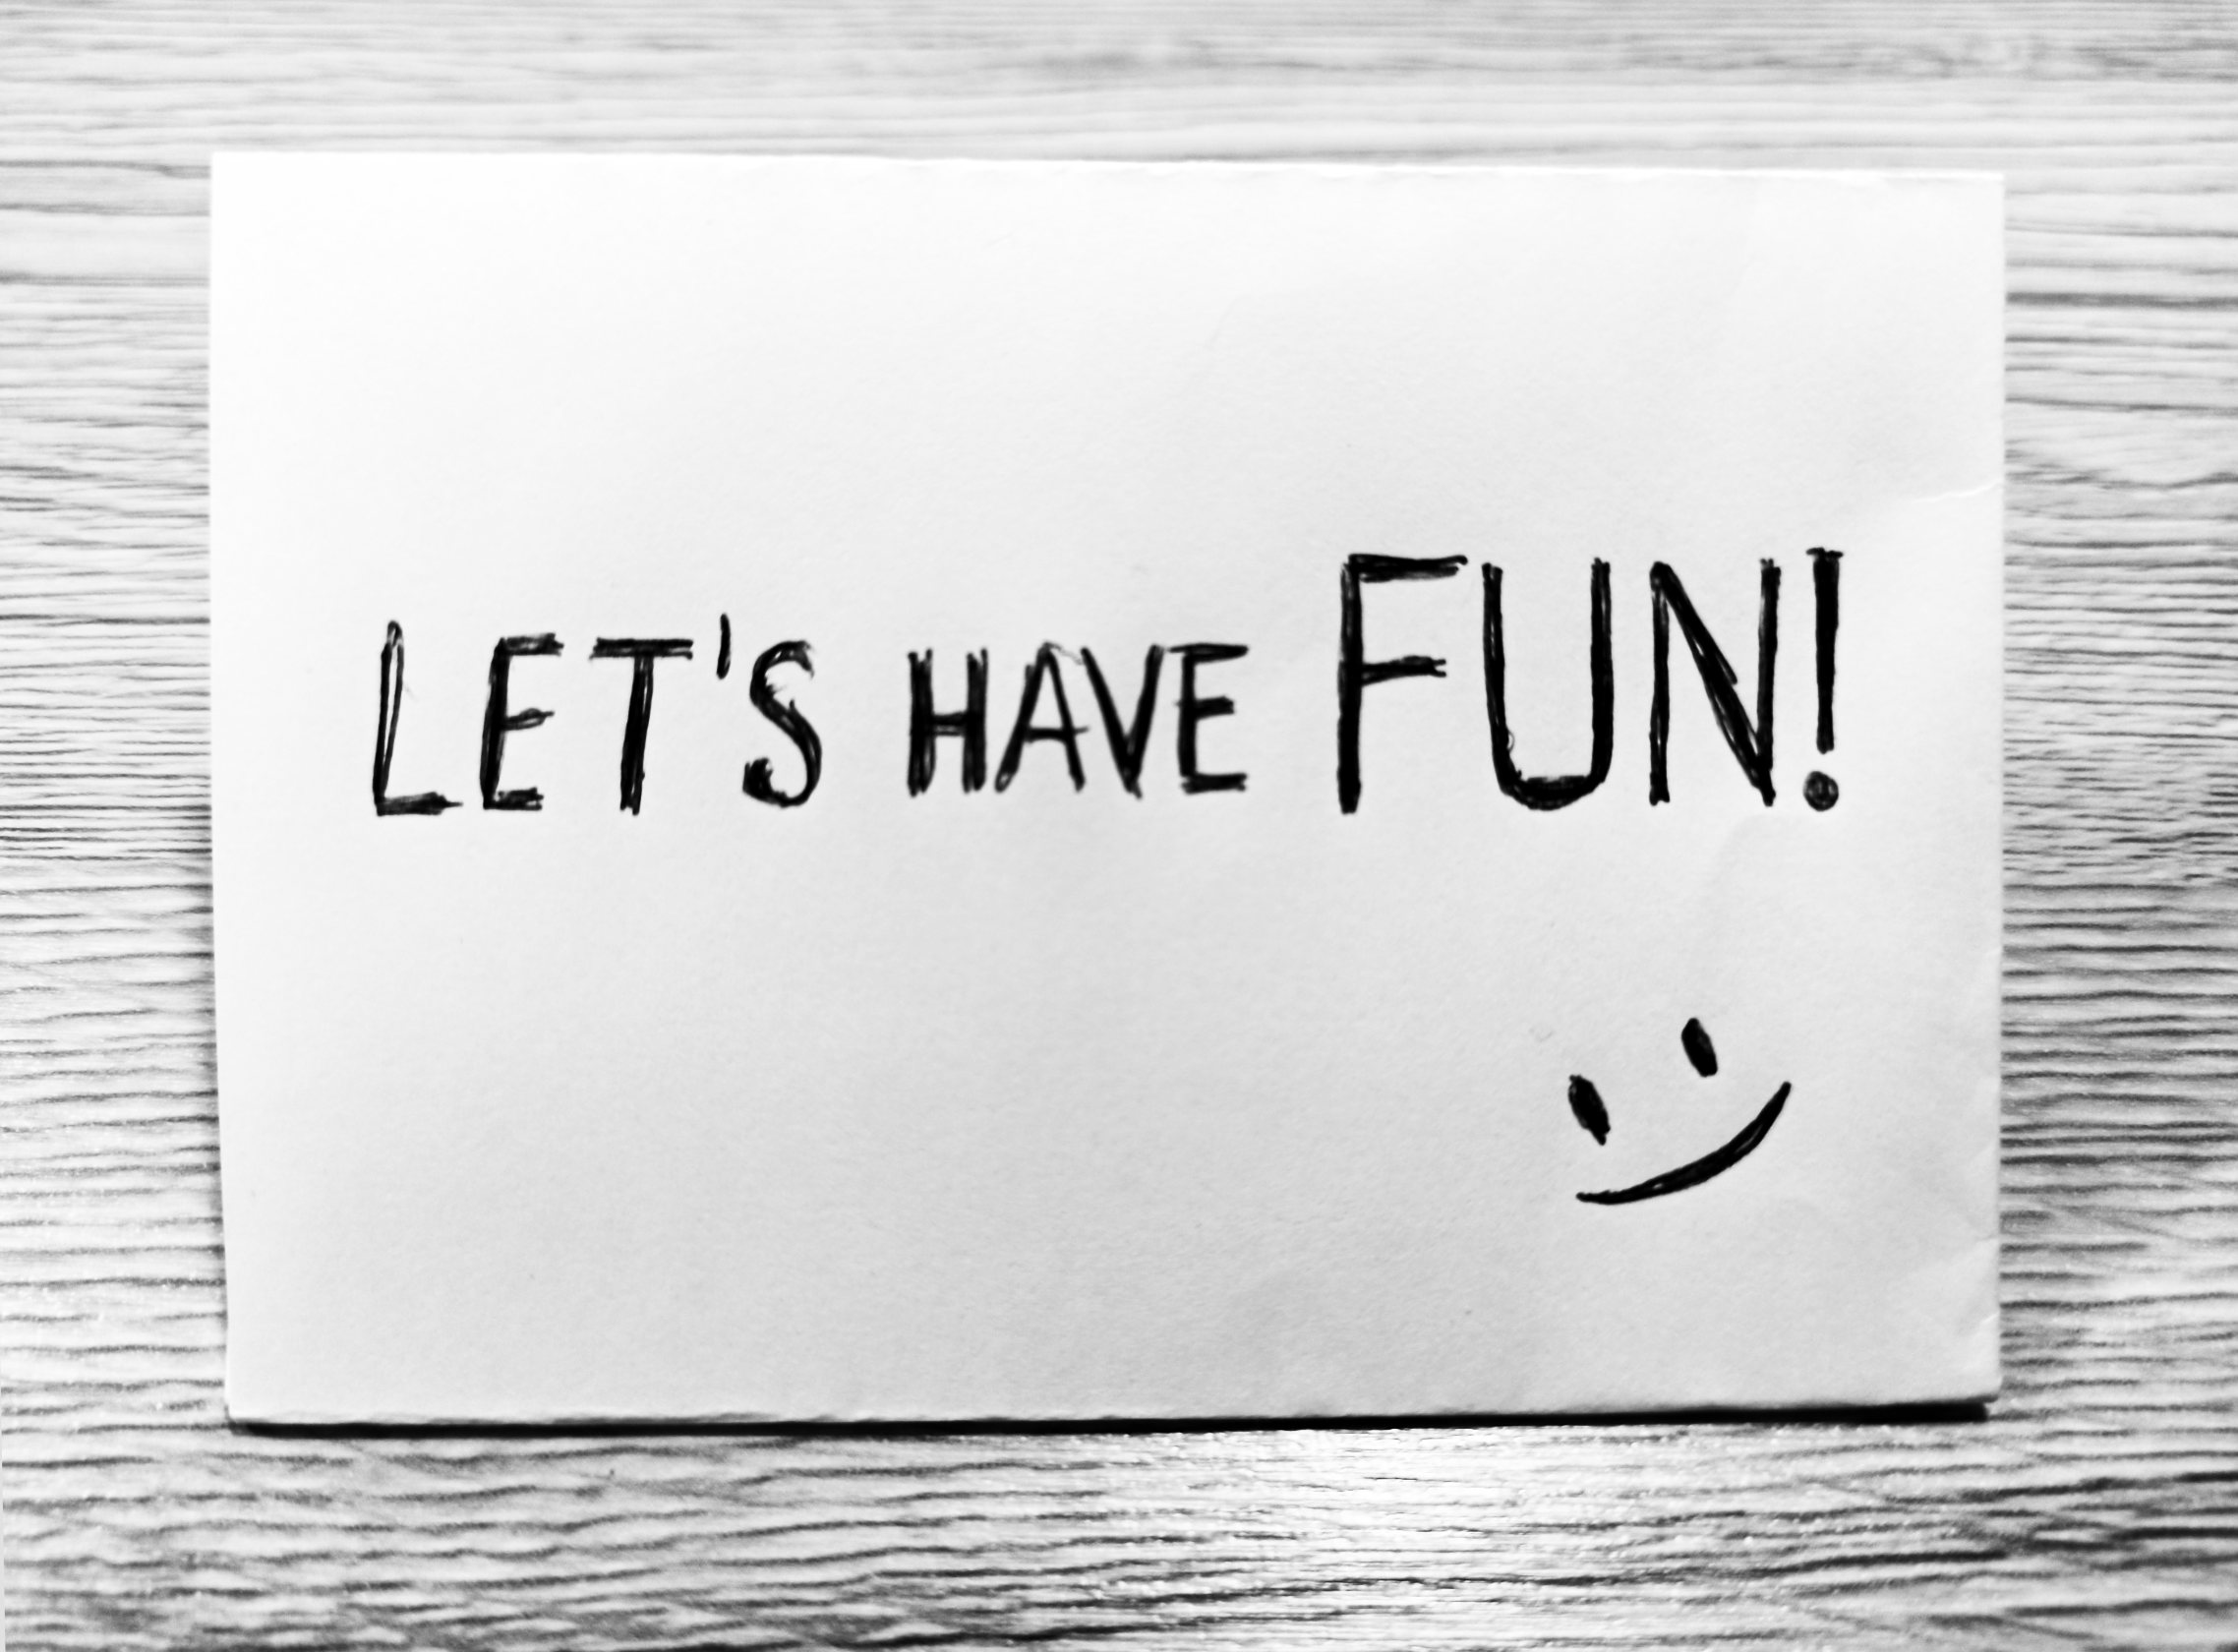 LET'S HAVE FUN!